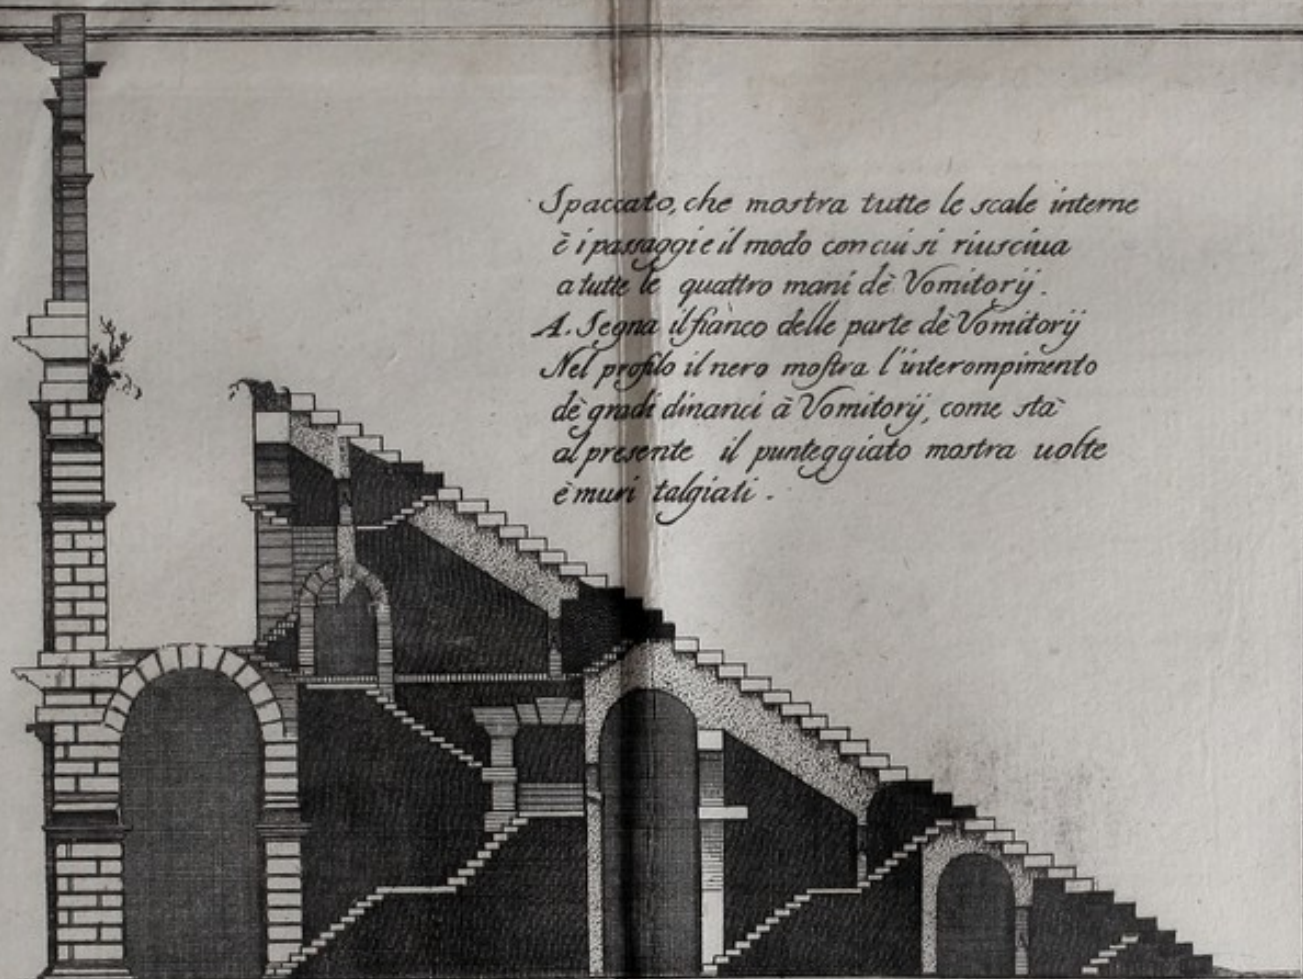 Spaccato, che mostra tutte le scale interne
è i passaggi e il modo con cui si riusciua
a tutte le quattro mani dè Vomitorij.
A. Segna il fianco delle parte dè Vomitorij
Nel profilo il nero moſtra l'interompimento
dè gradi dinanci à Vomitorij, come stà
al presente il punteggiato mostra uolte
è muri talgiati.